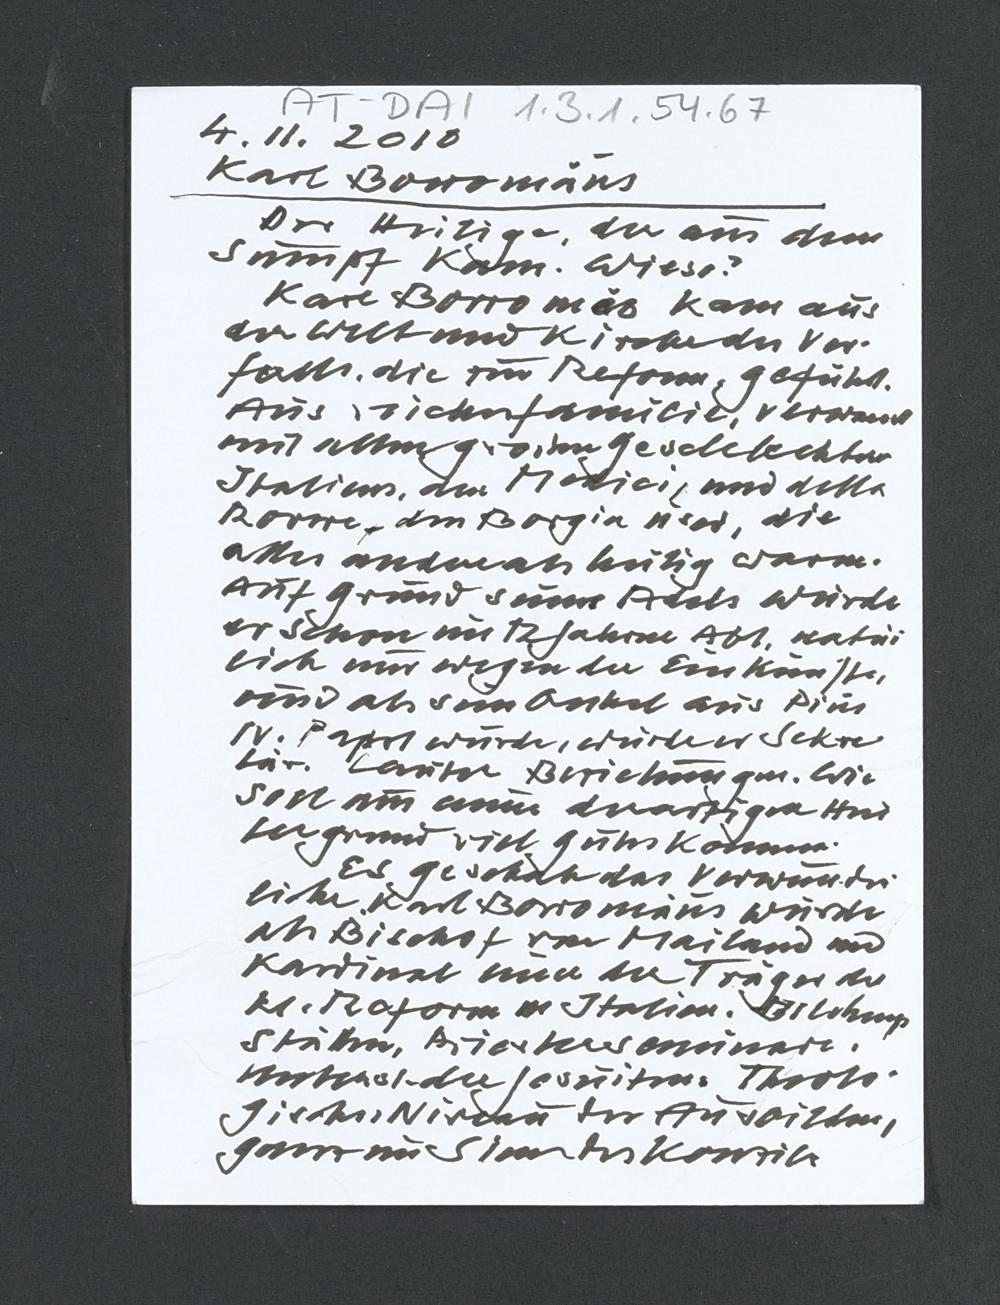 AT-DAI 1.3.1.54.67
4.11.2010
Karl Borromäus
Der Heilige, der aus dem
Sumpf kam. Wieso?
Karl Borromäs kam aus
der Welt und Kirche des Ver-
falls, die zur Reform, geführt.
Aus reichen familie, verwandt
mit allen großen Geschlechtern
Italiens, den Medici, und della
Rovere, den Borgia usw, die
alles andere als heilig waren.
Auf Grund seines Adels wurde
er schon mit 12 Jahren Abt, natür
lich nur wegen der Einkünfte,
und als sein Onkel aus Pius
IV. Papst wurde, wurde er Sekre
tär. Lauter Beziehungen. Wie
soll aus einem derartigen Hin
tergrund viel Gutes kommen.
Es geschah das Verwunder
liche, Karl Borromäus wurde
als Bischof von Mailand und
Kardinal einer der Träger der
kl. Reform in Italien. Bildungs
stätten, Priesterseminare,
der Jesuiten. Theolo-
gisches Niveau der Ausbildung,
ganz im Sinne des Konzils